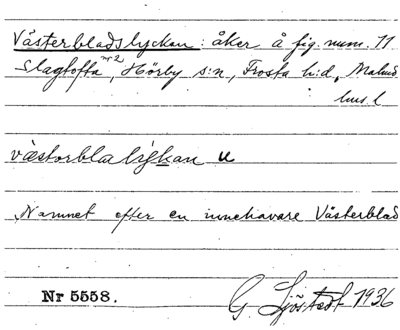 Västerbladslyckan: åker å fig. num. 11
Slagtofta nr 2, Hörby s:n, Frosta h:d, Malmö
hus l
væstorblalykan u
Namnet efter en innehavare Västerblad
Nr 5558.
G. Sjöstedt 1936